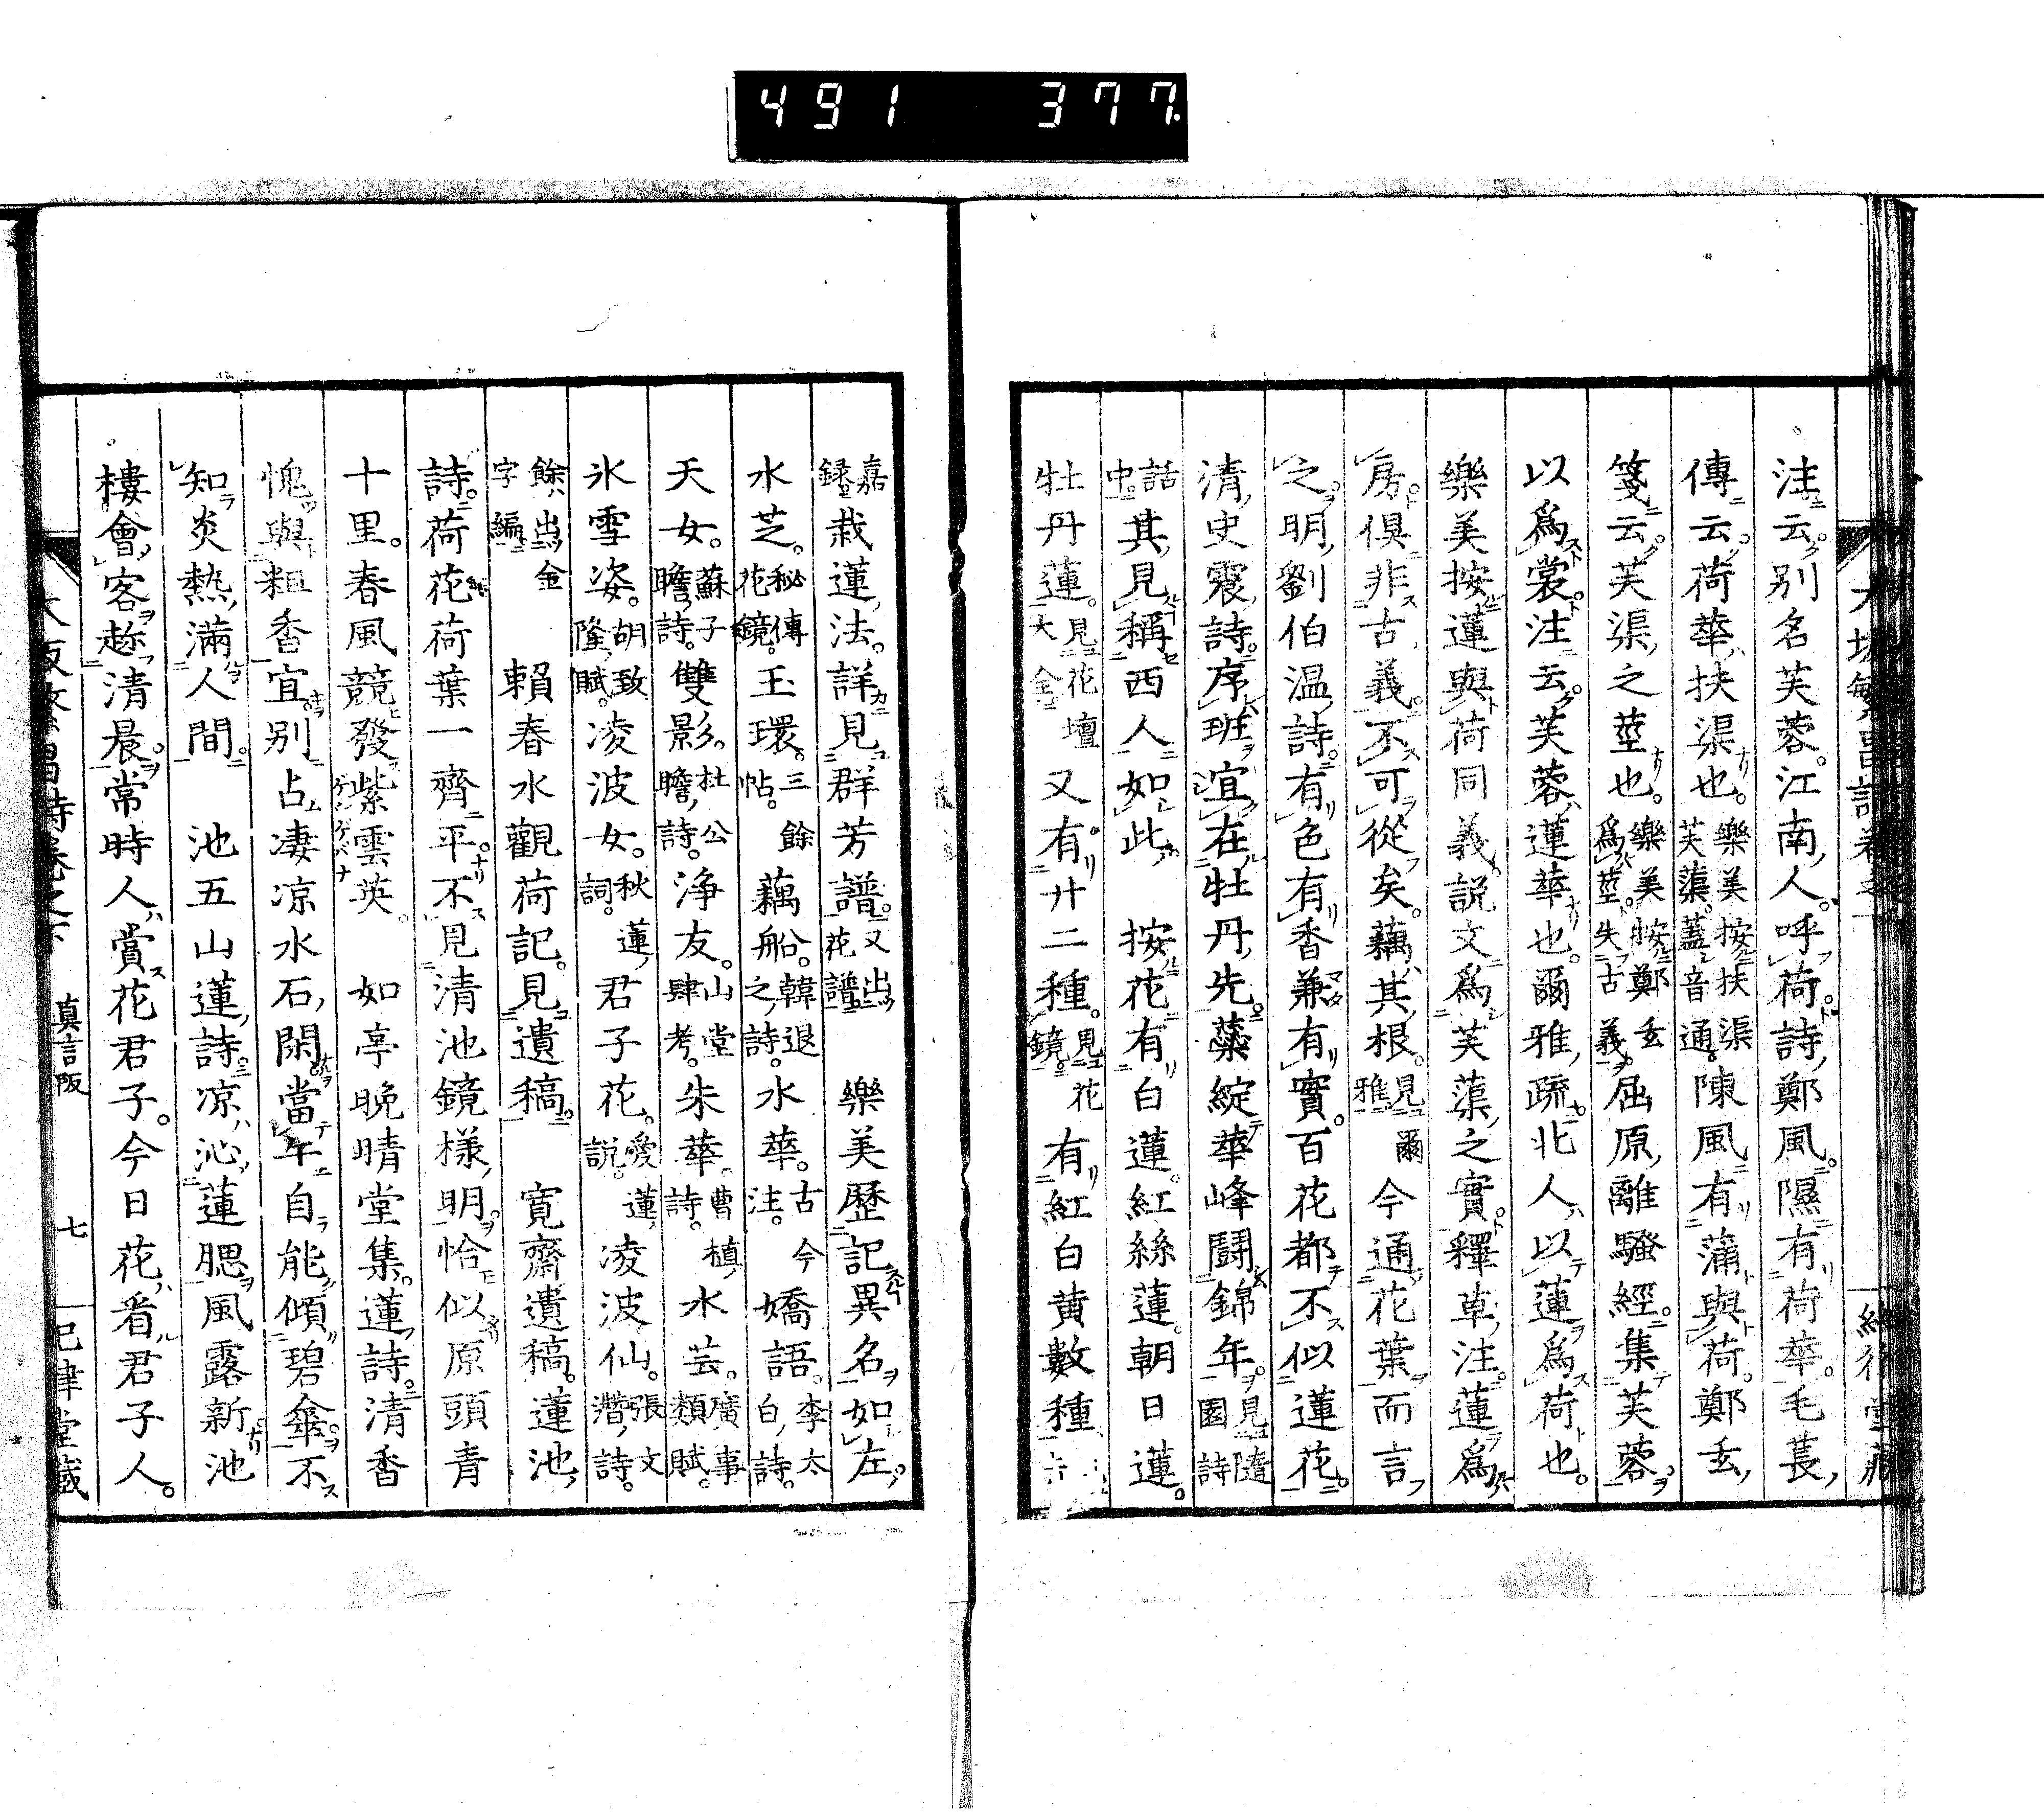 491 377.
注云。別名芙蓉。江南人。呼荷。詩鄭風。隰有荷華。毛萇
傳云。荷華扶渠也。樂美按扶渠芙蕖。蓋音通。陳風有蒲與荷。鄭玄
箋云。芙渠之莖也。樂美按鄭玄爲莖。失古義。屈原離騷經。集芙蓉
以爲裳。注云。芙蓉蓮華也。爾雅疏。北人以蓮爲荷也。
樂美按蓮與荷同義。説文爲芙蕖之實。釋草注。蓮爲
房。俱非古義。不可從矣。藕其根。見爾雅今通花葉而言
之。明劉伯温詩。有色有香兼有實。百花都不似蓮花。
清史震詩序。班宜在牡丹先。蘂綻華峰鬪錦年。見隨園詩
話中。其見稱西人如此。 按花有白蓮。紅絲蓮。朝日蓮。
牡丹蓮。見花壇大全又有廿二種。見花鏡。有紅白黄數種
嘉録栽蓮法。詳見群芳譜。又出花譜 樂美歷記異名如左。
水芝。秘傳花鏡。玉環。三餘帖。藕船。韓退之詩。水華。古今注。嬌語。李太白詩。
天女。蘇子瞻詩。雙影。杜公瞻詩。浄友。山堂肆考。朱華。曹植詩。水芸。廣事類賦。
氷雪姿。胡致隆賦。凌波女。秋蓮詞。君子花。愛蓮説。凌波仙。張文潛詩。
餘出金字編 賴春水觀荷記。見遺稿。 寛齋遺稿。蓮池
詩。荷花荷葉一齊平。不見清池鏡樣明。恰似原頭青
十里。春風競發紫雲英。 如亭晩晴堂集。蓮詩。清香
愧與粗香宜別占凄凉水石閑。當午自能傾碧傘。不
知炎熱滿人間。 池五山蓮詩。凉沁蓮腮風露新。池
樓會客趂清晨。常時人賞花君子。今日花看君子人。
眞言阪 七